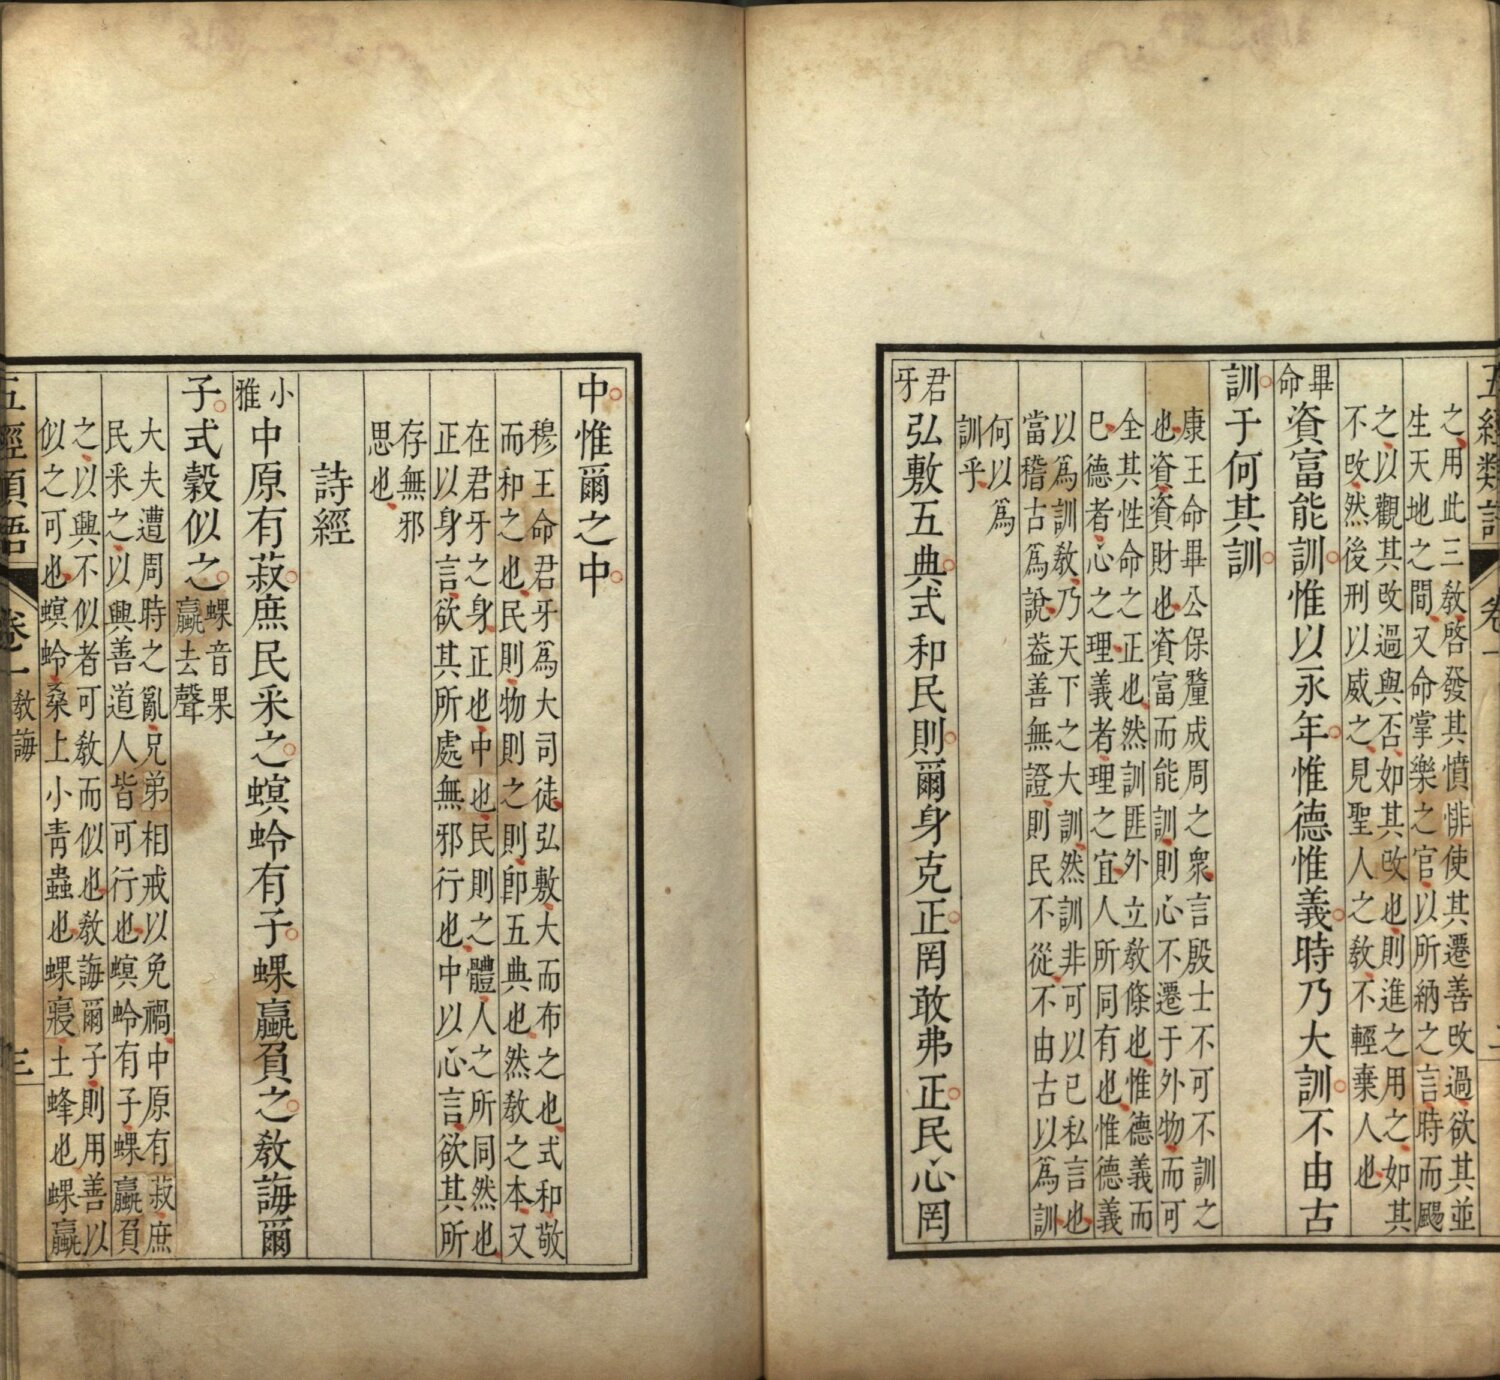 五經類語
卷一
之用此三教啓發其憤悱使其遷善改過欲其並
生天地之間又命掌樂之官以所納之言時而颺
之以觀其改過與否如其改也則進之用之如其
不改然後刑以威之見聖人之教不輕棄人也
畢命
資富能訓惟以永年惟德惟義時乃大訓不由古
訓于何其訓
康王命畢公保釐成周之衆言殷士不可不訓之
也資資財也資富而能訓則心不遷于外物而可
全其性命之正也然訓匪外立教條也惟德義而
已德者心之理義者理之宜人所同有也惟德義
以爲訓教乃天下之大訓然訓非可以已私言也
當稽古爲說葢善無證則民不從不由古以爲訓
何以爲
訓乎
君牙
弘敷五典式和民則爾身克正罔敢弗正民心罔
中惟爾之中
穆王命君牙爲大司徒弘敷大而布之也式和敬
而和之也民則物則之則卽五典也然教之本又
在君牙之身正也中也民則之體人之所同然也
正以身言欲其所處無邪行也中以心言欲其所
存無邪
思也
詩經
小雅
中原有菽庶民采之螟蛉有子蜾蠃負之教誨爾
子式穀似之
蜾音果
蠃去聲
大夫遭周時之亂兄弟相戒以免禍中原有菽庶
民采之以興善道人皆可行也螟蛉有子蜾蠃負
之以興不似者可教而似也教誨爾子則用善以
似之可也螟蛉桑上小靑蟲也蜾蠃土蜂也蜾蠃
五經類語
卷一
教誨
三